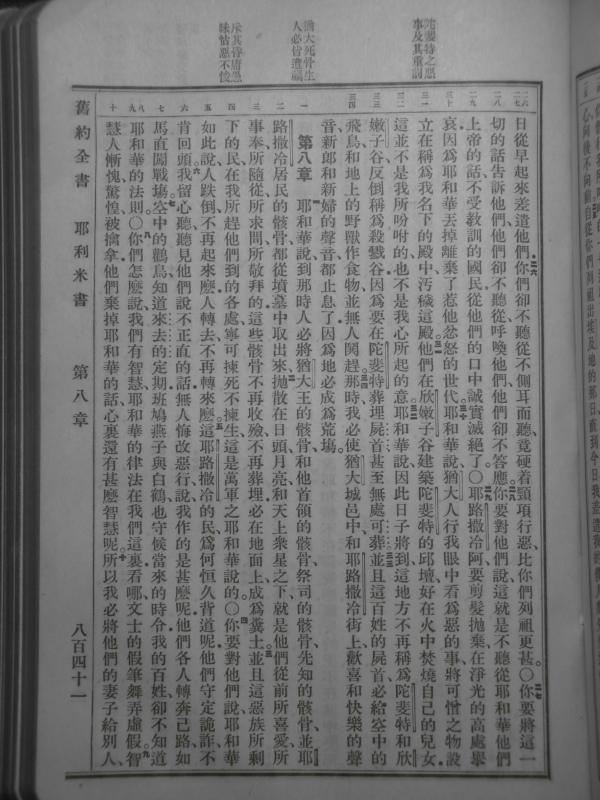 陀斐特之惡
事及其重罰
猶大死骨生
人必皆遭禍
斥其昏庸愚
昧怙惡不悛
日從早起來差遣他們你們卻不聽從不側耳而聽竟硬着頸項行惡比你們列祖更甚〇你要將這一
切的話告訴他們他們卻不聽從呼喚他們他們卻不答應你要對他們說這就是不聽從耶和華他們
上帝的話不受教訓的國民從他們的口中誠實滅絕了〇耶路撒冷阿要剪髮抛棄在淨光的高處舉
哀因爲耶和華丟掉離棄了惹他忿怒的世代耶和華說猶大人行我眼中看爲惡的事將可憎之物設
立在稱爲我名下的殿中汚穢這殿他們在欣嫩子谷建築陀斐特的邱壇好在火中焚燒自己的兒女
這並不是我所吩咐的也不是我心所起的意耶和華說因此日子將到這地方不再稱爲陀斐特和欣
嫩子谷反倒稱爲殺戮谷因爲要在陀斐特葬埋屍首甚至無處可葬並且這百姓的屍首必給空中的
飛鳥和地上的野獸作食物並無人鬨趕那時我必使猶大城邑中和耶路撒冷街上歡喜和快樂的聲
音新郎和新婦的聲音都止息了因爲地必成爲荒塲
第八章 耶和華說到那時人必將猶大王的骸骨和他首領的骸骨祭司的骸骨先知的骸骨並耶
路撒冷居民的骸骨都從墳墓中取出來抛散在日頭月亮和天上衆星之下就是他們從前所喜愛所
事奉所隨從所求問所敬拜的這些骸骨不再收殮不再葬埋必在地面上成爲糞土並且這惡族所剩
下的民在我所趕他們到的各處寧可揀死不揀生這是萬軍之耶和華說的〇你要對他們說耶和華
如此說人跌倒不再起來麽人轉去不再轉來麽這耶路撒冷的民爲何恒久背道呢他們守定詭詐不
肯回頭我留心聽聽見他們說不正直的話無人悔改惡行說我作的是甚麽呢他們各人轉奔己路如
馬直闖戰塲空中的鸛鳥知道來去的定期班鳩燕子與白鶴也守候當來的時令我的百姓卻不知道
耶和華的法則〇你們怎麽說我們有智慧耶和華的律法在我們這裏看哪文士的假筆舞弄虛假智
慧人慚愧驚惶被擒拿他們棄掉耶和華的話心裏還有甚麽智慧呢所以我必將他們的妻子給別人
舊約全書 耶利米書 第八章 八百四十一